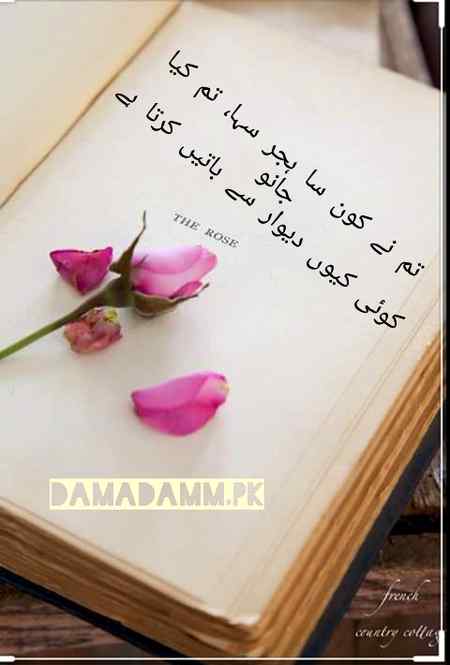 تم نے کون سا ہجر سہا، تم کیا
جانو
کوئی کیوں دیوار سے باتیں کرتا ہے
THE ROSE
DAMADAMM.PK
french
country cottag